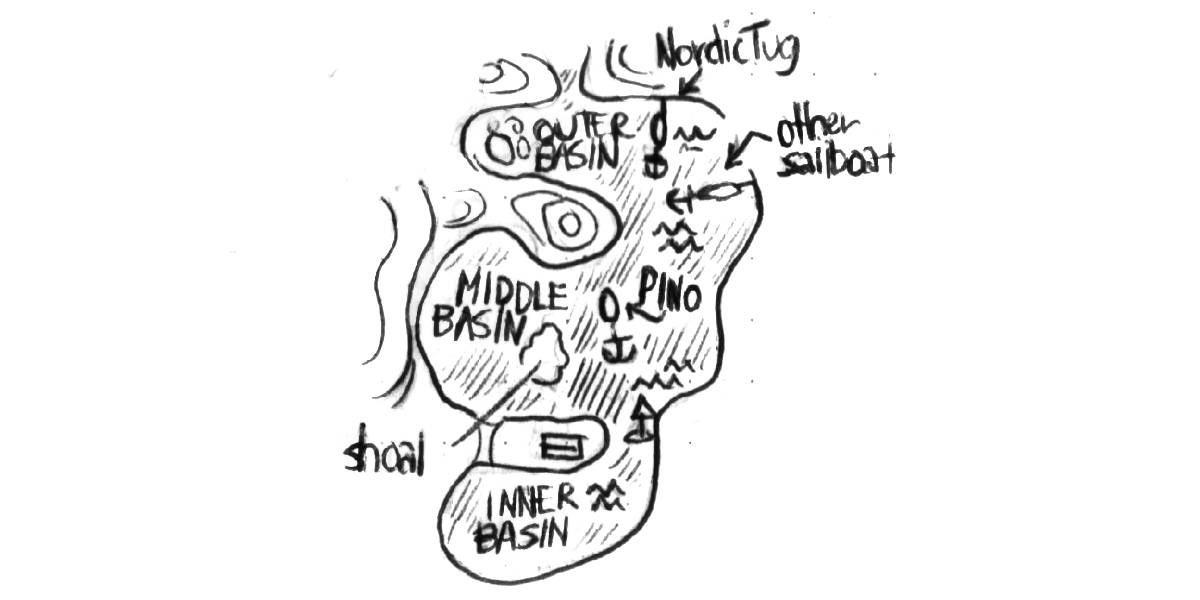 Nordic Tug
OUTER
BASIN
other
sailboat
MIDDLE
BASIN
PINO
shoal
INNER
BASIN